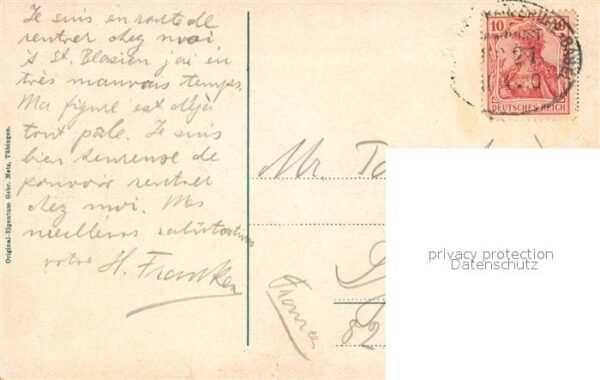 Je suis en route de
rentrer chez moi
A St. Blasien j'ai eu
très mauvais temps.
Ma figure est déjà
tout pale. Je suis
bien heureuse de
pouvoir rentrer
chez moi. Mes
meilleures salutations
votre H. Franken
Original-Eigentum Gebr. Metz, Tübingen.
10
DEUTSCHES REICH
Mr.
France
82
privacy protection
Datenschutz